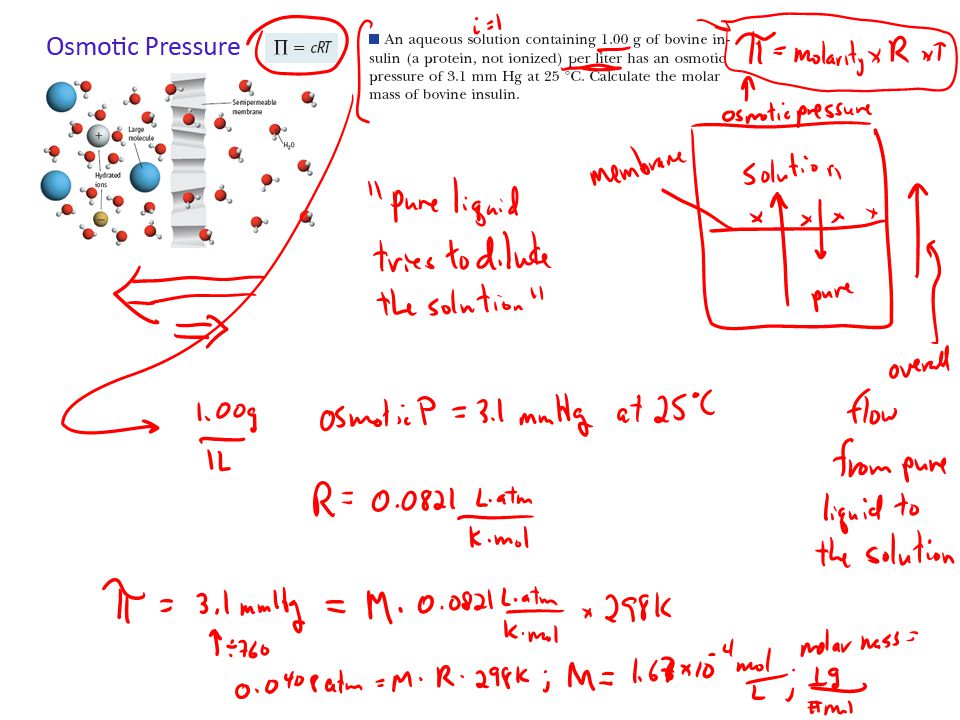 Osmotic Pressure
∏ = cRT
i=1
■ An aqueous solution containing 1.00 g of bovine in-
sulin (a protein, not ionized) per liter has an osmotic
pressure of 3.1 mm Hg at 25 °C. Calculate the molar
mass of bovine insulin.
π = molarity × R × T
osmotic pressure
Semipermeable
membrane
Large
molecule
H₂O
Hydrated
ions
+
−
membrane
solution
x x x x
pure
overall
flow
from pure
liquid to
the solution
"pure liquid
tries to dilute
the solution"
1.00g
1L
osmotic P = 3.1 mmHg at 25°C
R = 0.0821 L·atm
K·mol
π = 3.1 mmHg = M · 0.0821 L·atm × 298K
K·mol
÷760
atm = M · R · 298K ; M = × 10⁻⁴ mol ;
L
molar mass =
g
mol